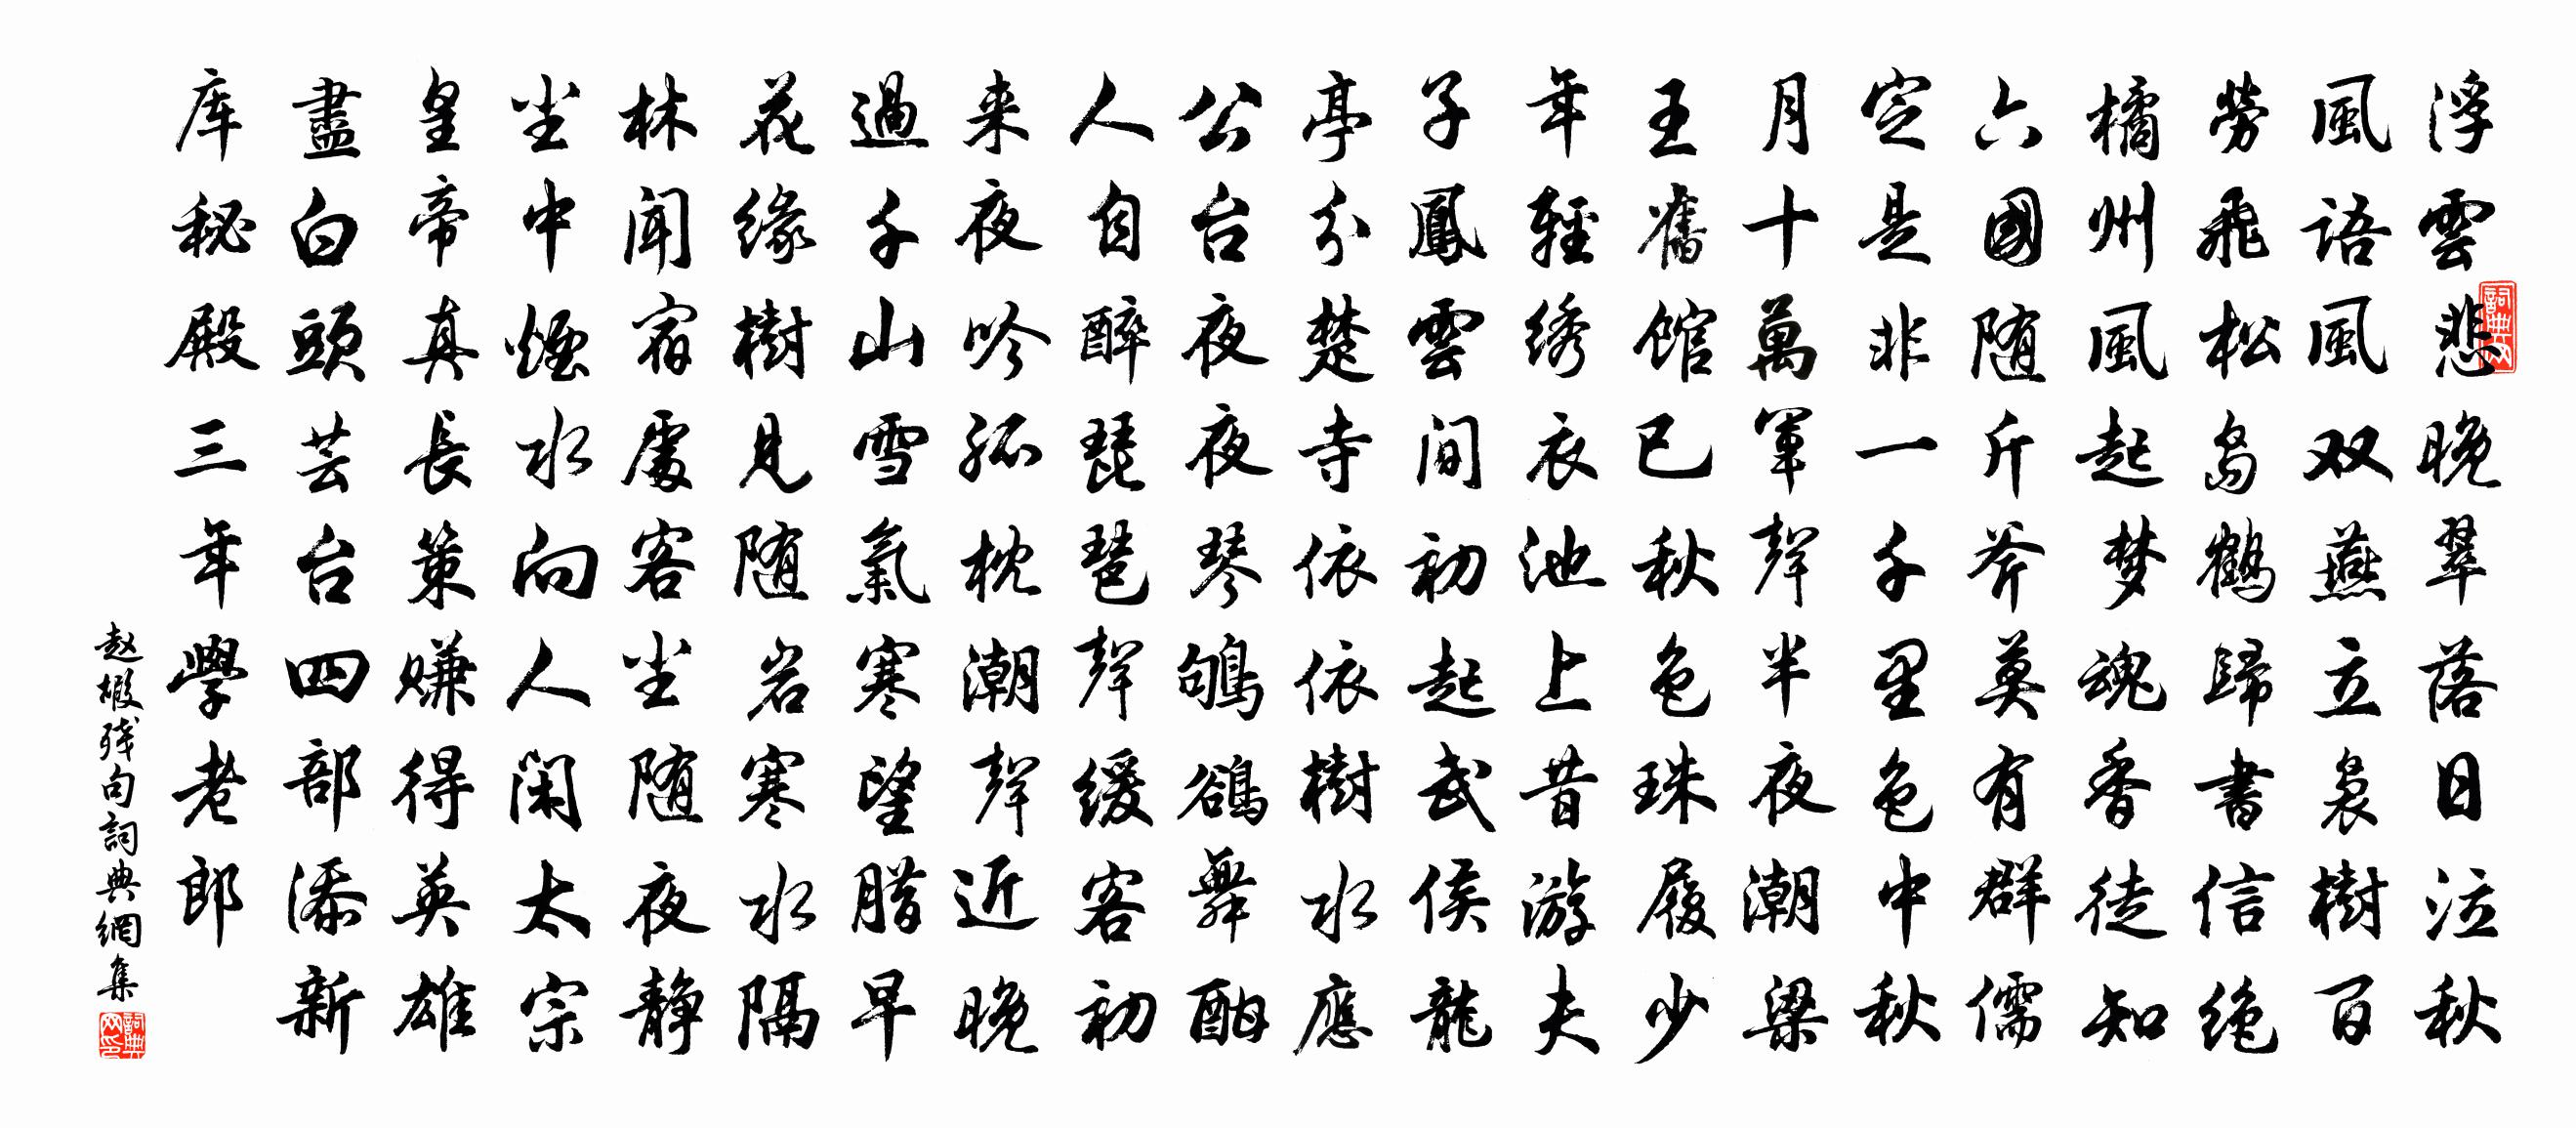 浮雲悲晚翠落日泣秋
風語風風双燕立裊樹百
勞飛松島鶴歸書信绝
橘州風起梦魂香徒知
六國随斤斧莫有群儒
定是非一千里色中秋
月十萬軍聲半夜潮梁
王舊馆已秋色珠履少
年輕绣衣池上昔游夫
子鳳雲间初起武侯龍
亭分楚寺依依樹水應
公台夜夜琴鴝鵒舞酣
人自醉琵琶聲缓客初
来夜吟孤枕潮聲近晚
過千山雪氣寒望腊早
花缘樹見随岩寒水隔
林闻宿處客坐随夜静
坐中煙水向人闲太宗
皇帝真長策赚得英雄
盡白頭芸台四部添新
库秘殿三年學老郎
赵嘏残句詞典網集
詞典网
詞典网印